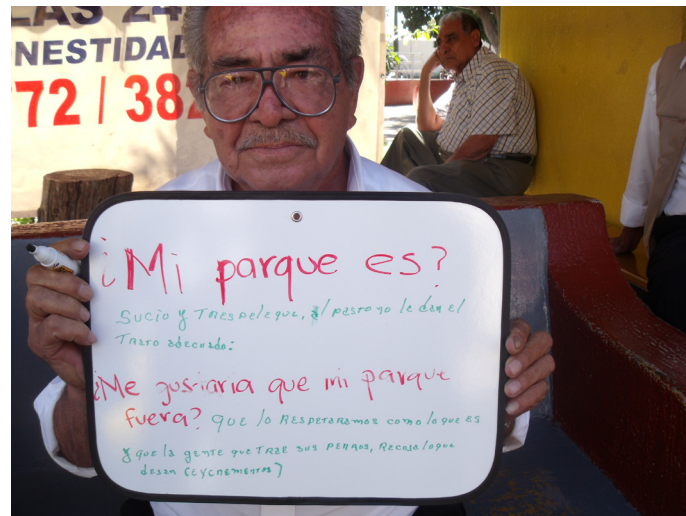 LAS 24
ONESTIDAD
72 / 382
¿Mi parque es?
Sucio y TRespeleque, el pasto no le dan el
Trato adecuado:
¿Me gustaria que mi parque
fuera? que lo RESPETARAMOS como lo que es
y que la gente que TRAE sus PERROS, Recoja lo que
dejan (EXCREMENTOS)